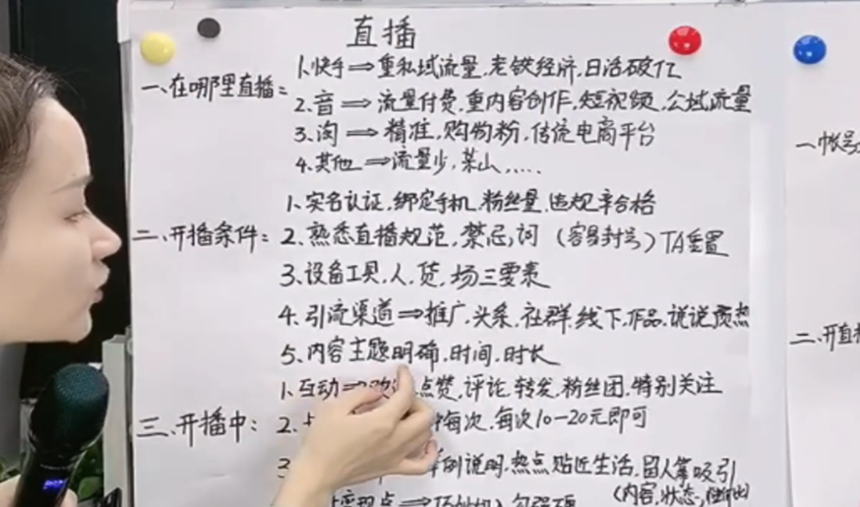 直播
一、在哪里直播:
1、快手⇒重私域流量,老铁经济,日活破亿
2、音⇒流量付费,重内容创作,短视频,公域流量
3、淘⇒精准,购物粉,传统电商平台
4、其他⇒流量少,菜山,.....
二、开播条件:
1、实名认证,绑定手机,粉丝量,违规率合格
2、熟悉直播规范,禁忌,词(容易封号)TA重置
3、设备工具,人、货、场三要素
4、引流渠道⇒推广,头条,社群,线下,作品,说说预热
5、内容主题明确,时间,时长
三、开播中:
1、互动⇒点赞,评论,转发,粉丝团,特别关注
2、每次,每次10-20元即可
3、例说明,热点贴近生活,留人等吸引
(内容,状态,
一帐号
二、开直播